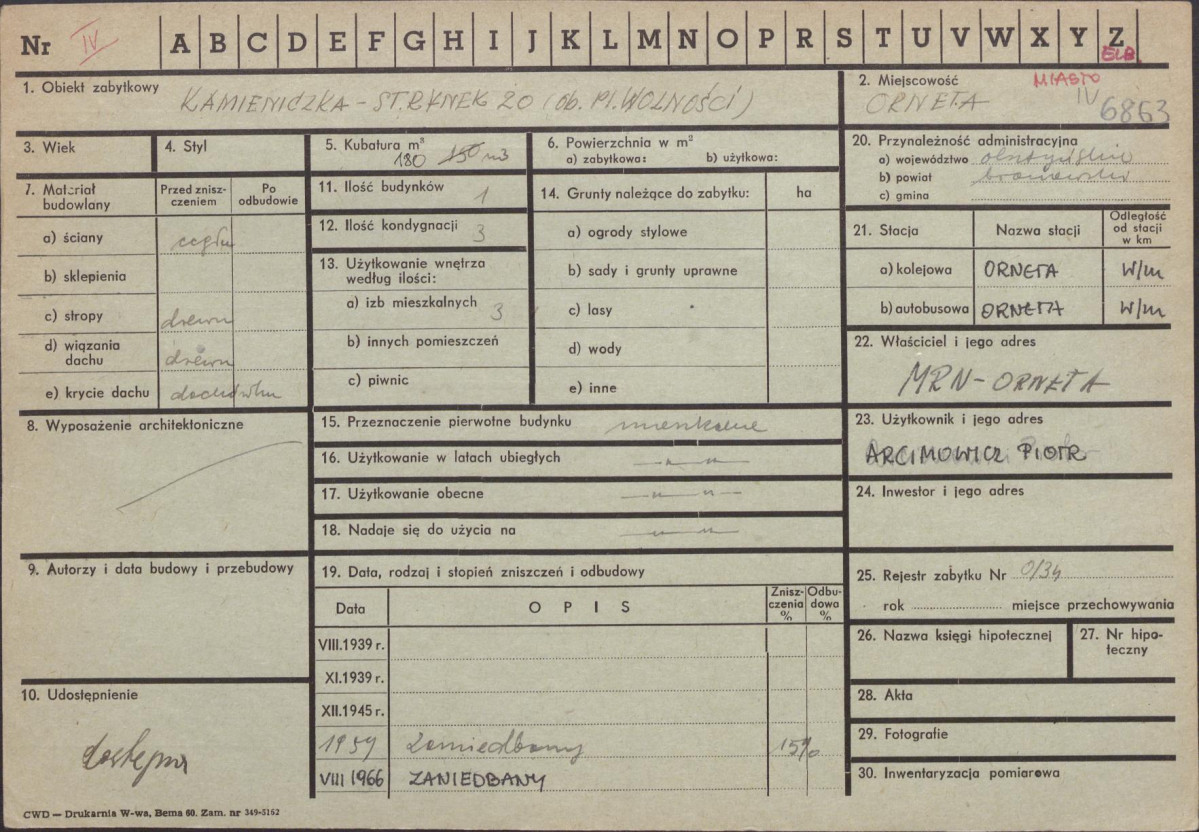 Nr IV A B C D E F G H I J K L M N O P R S T U V W X Y Z
ELB.
1. Obiekt zabytkowy
KAMIENICZKA - ST. RYNEK 20 (ob. Pl. WOLNOŚCI)
2. Miejscowość MIASTO
ORNETA IV 6863
3. Wiek
4. Styl
5. Kubatura m³
180 150 m3
6. Powierzchnia w m²
a) zabytkowa: b) użytkowa:
20. Przynależność administracyjna
a) województwo olsztyńskie
b) powiat braniewski
c) gmina
7. Materiał budowlany
Przed zniszczeniem
Po odbudowie
a) ściany cegła
b) sklepienia
c) stropy drewn
d) wiązania dachu drewn
e) krycie dachu dachówka
11. Ilość budynków 1
12. Ilość kondygnacji 3
13. Użytkowanie wnętrza według ilości:
a) izb mieszkalnych 3
b) innych pomieszczeń
c) piwnic
14. Grunty należące do zabytku: ha
a) ogrody stylowe
b) sady i grunty uprawne
c) lasy
d) wody
e) inne
21. Stacja Nazwa stacji Odległość od stacji w km
a) kolejowa ORNETA W/m
b) autobusowa ORNETA W/m
22. Właściciel i jego adres
MRN - ORNETA
8. Wyposażenie architektoniczne
15. Przeznaczenie pierwotne budynku mieszkalne
16. Użytkowanie w latach ubiegłych —„—„—
17. Użytkowanie obecne —„—„—
18. Nadaje się do użycia na —„—„—
23. Użytkownik i jego adres
ARCIMOWICZ PIOTR
24. Inwestor i jego adres
9. Autorzy i data budowy i przebudowy
19. Data, rodzaj i stopień zniszczeń i odbudowy
Data OPIS Zniszczenia % Odbudowa %
VIII.1939 r.
XI.1939 r.
XII.1945 r.
1959 Zaniedbany 15%
VIII 1966 ZANIEDBANY
25. Rejestr zabytku Nr 0/34
rok miejsce przechowywania
26. Nazwa księgi hipotecznej
27. Nr hipoteczny
28. Akta
29. Fotografie
30. Inwentaryzacja pomiarowa
10. Udostępnienie
dostępny
CWD — Drukarnia W-wa, Bema 60. Zam. nr 349-5162